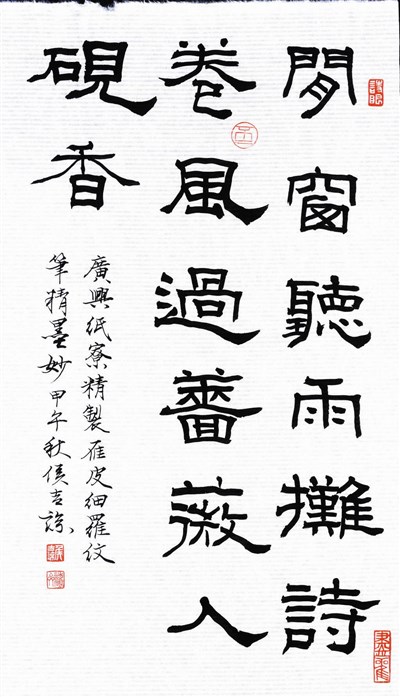 閒窗聽雨攤詩
卷風過薔薇人
硯香
廣興紙寮精製雁皮細羅紋
筆精墨妙甲午秋侯吉諒